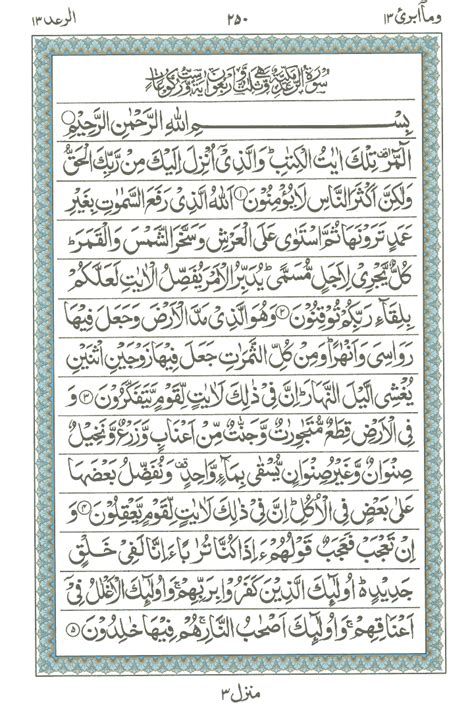 وماابرئ ١٣
٢٥٠
الرعد ١٣
سُوْرَةُ الرَّعْدِ مَدَنِيَّةٌ وَّهِيَ ثَلٰثٌ وَّاَرْبَعُوْنَ اٰيَةً وَّسِتُّ رُكُوْعَاتٍ
بِسْمِ اللّٰهِ الرَّحْمٰنِ الرَّحِيْمِ
الٓمّٓرٰ تِلْكَ اٰيٰتُ الْكِتٰبِ ؕ وَالَّذِيْۤ اُنْزِلَ اِلَيْكَ مِنْ رَّبِّكَ الْحَقُّ
وَلٰكِنَّ اَكْثَرَ النَّاسِ لَا يُؤْمِنُوْنَ ۝۱ اَللّٰهُ الَّذِيْ رَفَعَ السَّمٰوٰتِ بِغَيْرِ
عَمَدٍ تَرَوْنَهَا ثُمَّ اسْتَوٰى عَلَى الْعَرْشِ وَسَخَّرَ الشَّمْسَ وَالْقَمَرَ ؕ
كُلٌّ يَّجْرِيْ لِاَجَلٍ مُّسَمًّى ؕ يُدَبِّرُ الْاَمْرَ يُفَصِّلُ الْاٰيٰتِ لَعَلَّكُمْ
بِلِقَآءِ رَبِّكُمْ تُوْقِنُوْنَ ۝۲ وَهُوَ الَّذِيْ مَدَّ الْاَرْضَ وَجَعَلَ فِيْهَا
رَوَاسِيَ وَاَنْهٰرًا ؕ وَمِنْ كُلِّ الثَّمَرٰتِ جَعَلَ فِيْهَا زَوْجَيْنِ اثْنَيْنِ
يُغْشِي الَّيْلَ النَّهَارَ ؕ اِنَّ فِيْ ذٰلِكَ لَاٰيٰتٍ لِّقَوْمٍ يَّتَفَكَّرُوْنَ ۝۳ وَ
فِي الْاَرْضِ قِطَعٌ مُّتَجٰوِرٰتٌ وَّجَنّٰتٌ مِّنْ اَعْنَابٍ وَّزَرْعٌ وَّنَخِيْلٌ
صِنْوَانٌ وَّغَيْرُ صِنْوَانٍ يُّسْقٰى بِمَآءٍ وَّاحِدٍ ۫ وَنُفَضِّلُ بَعْضَهَا
عَلٰى بَعْضٍ فِي الْاُكُلِ ؕ اِنَّ فِيْ ذٰلِكَ لَاٰيٰتٍ لِّقَوْمٍ يَّعْقِلُوْنَ ۝۴ وَ
اِنْ تَعْجَبْ فَعَجَبٌ قَوْلُهُمْ ءَاِذَا كُنَّا تُرٰبًا ءَاِنَّا لَفِيْ خَلْقٍ
جَدِيْدٍ ؕ اُولٰٓئِكَ الَّذِيْنَ كَفَرُوْا بِرَبِّهِمْ ۚ وَاُولٰٓئِكَ الْاَغْلٰلُ فِيْۤ
اَعْنَاقِهِمْ ۚ وَاُولٰٓئِكَ اَصْحٰبُ النَّارِ ۚ هُمْ فِيْهَا خٰلِدُوْنَ ۝۵
منزل ٣